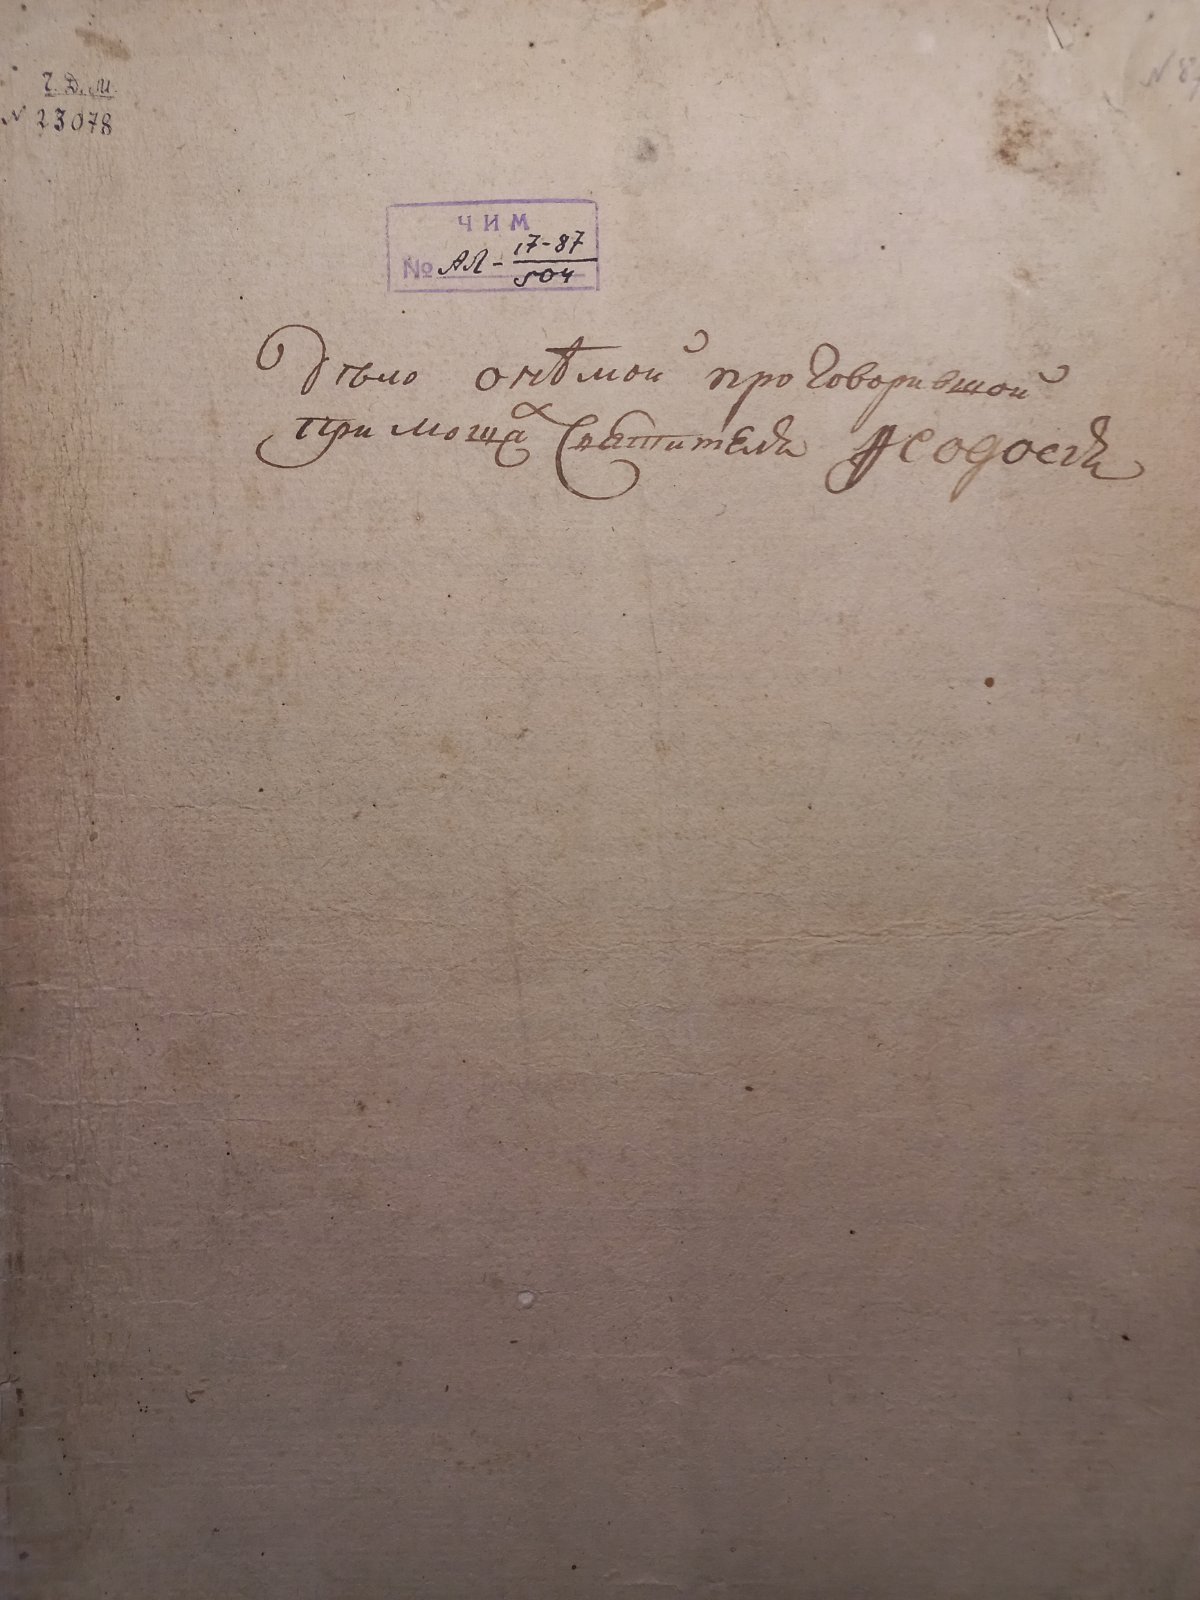 Ч. Д. М.
N 23078
N 8
ЧИМ
№ АЛ - 17-87/504
Дѣло онѣмой проговорившой
при моща Святителя Ѳеодосія